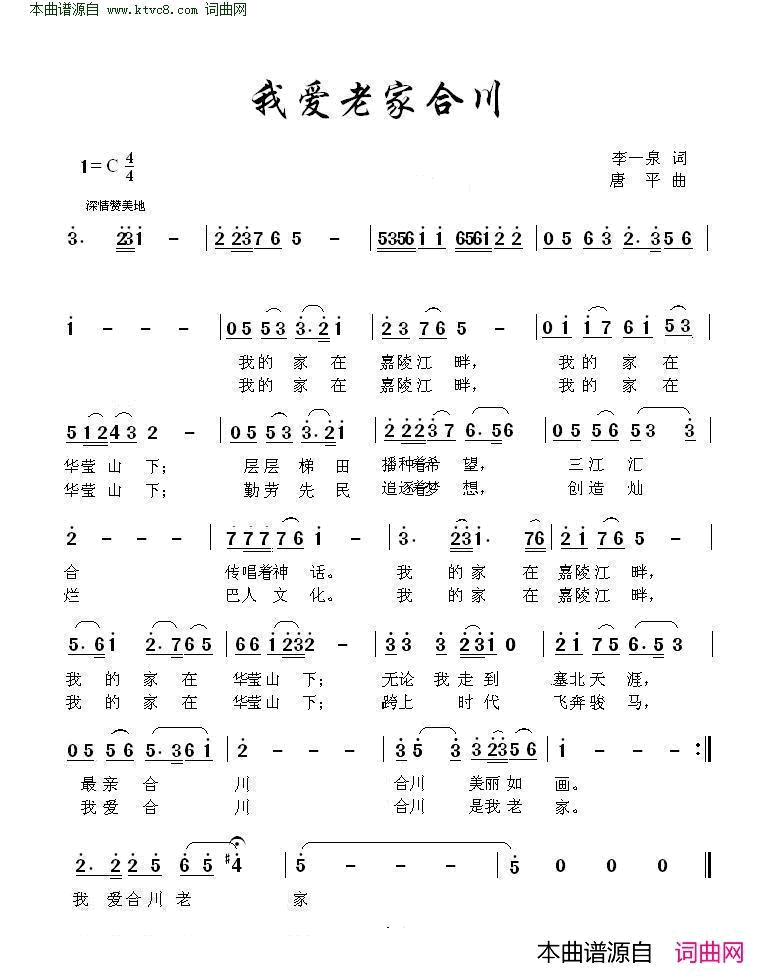 本曲谱源自 www.ktvc8.com 词曲网
我爱老家合川
1=C 4/4
李一泉 词
唐 平 曲
深情赞美地
3. 231 - | 2 2376 5 - | 5356 1 1 6561 2 2 | 05 63 2. 356 |
1 - - - | 05 53 3. 21 | 23 76 5 - | 01 17 61 53 |
我的 家 在 嘉陵江 畔, 我的 家 在
我的 家 在 嘉陵江 畔, 我的 家 在
51243 2 - | 05 53 3. 21 | 2 2223 6. 56 | 05 56 53 3 |
华莹 山 下; 层层 梯 田 播种着希 望, 三江 汇
华莹 山 下; 勤劳 先 民 追逐着梦 想, 创造 灿
2 - - - | 77776 1 - | 3. 231. 76 | 21 76 5 - |
合 传唱着神 话。 我 的 家 在 嘉陵江 畔,
烂 巴人 文 化。 我 的 家 在 嘉陵江 畔,
5. 61 2. 765 | 661232 - | 33 3 2310 | 21 75 6. 53 |
我 的 家 在 华莹山 下; 无论 我 走 到 塞北天 涯,
我 的 家 在 华莹山 下; 跨上 时 代 飞奔骏 马,
05 56 5. 361 | 2 - - - | 35 3 32356 | 1 - - :‖
最亲 合 川 合川 美丽如 画。
我爱 合 川 合川 是我老 家。
2. 225 65 #4 | 5 - - - | 5 0 0 0 ‖
我 爱合川老 家
本曲谱源自 词曲网